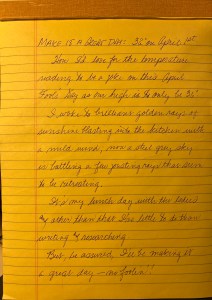 MAKE IS A GREAT DAY: 32° on April 1st
How I'd love for the temperature
reading to be a joke on this April
Fool's Day as our high is to only be 36°
I woke to brilliant golden rays of
sunshine blasting into the kitchen with
a mild wind; now a steel gray sky
is battling a few jousting rays that seem
to be retreating.
It's my lunch day with the ladies
& other than that I've little to do than
writing & researching.
But, be assured, I'll be making it
a great day — no foolin'!